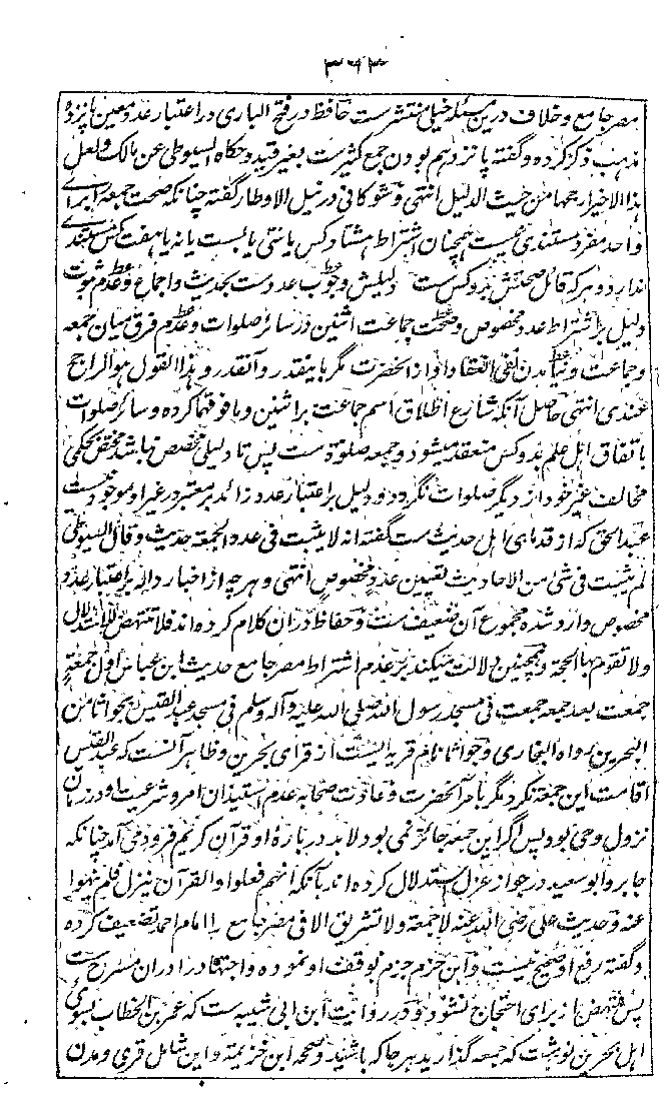 ۳۶۳
مصر جامع و خلاف درین مسئله خیلی منتشر ست حافظ در فتح الباری در اعتبار عدد معین پانزده
مذهب ذکر کرده و گفته پانزدهم بودن جمع کثیر ست بغیر قید و حکاه السیوطی عن مالک و لعل
هذا الاخیر ارجحها من حیث الدلیل انتهی و شوکانی در نیل الاوطار گفته چنانکه صحت جمعه از برای
واحد منفرد مستندی نیست همچنان اشتراط هشتاد کس یا سی یا بست یا نه یا هفت کس مستند
ندارد و هر که قائل صحتش بدو کس ست دلیلش وجوب عدد ست بحدیث و اجماع و عدم ثبوت
دلیل بر اشتراط عدد مخصوص و صحت جماعت اثنین در سائر صلوات و عدم فرق میان جمعه
و جماعت و نیامدن نفی انعقاد او از آنحضرت مگر باینقدر و آنقدر و هذا القول هو الراجح
عندی انتهی حاصل آنکه شارع اطلاق اسم جماعت بر اثنین و ما فوقهما کرده و سائر صلوات
باتفاق اهل علم بدو کس منعقد میشود و جمعه صلوة ست پس تا دلیلی مخصص نباشد مختص بحکمی
مخالف غیر خود از دیگر صلوات نگردد و دلیل بر اعتبار عدد زائد بر معتبر در غیر او موجود نیست
عبد الحق که از قدمای اهل حدیث ست گفته انه لا یثبت فی عدد الجمعة حدیث و قال السیوطی
لم یثبت فی شئ من الاحادیث تعیین عدد مخصوص انتهی و هر چه از اخبار داله بر اعتبار عدد
مخصوص وارد شده مجموع آن ضعیف ست و حفاظ دران کلام کرده اند فلا تنتهض للاستدلال
و لا تقوم بها الحجة و همچنین دلالت میکند بر عدم اشتراط مصر جامع حدیث ابن عباس اول جمعة
جمعت بعد جمعة جمعت فی مسجد رسول الله صلی الله علیه و آله وسلم فی مسجد عبد القیس بجواثا من
البحرین رواه البخاری و جواثا نام قریه ایست از قرای بحرین و ظاهر آنست که عبد القیس
اقامت این جمعه نکرد مگر بامر آنحضرت و عادت صحابه عدم استیذان امر و شرعیت او در زمان
نزول وحی بود پس اگر این جمعه جائز نمی بود لا بد در باره او قرآن کریم فرود می آمد چنانکه
جابر و ابو سعید در جواز عزل استدلال کرده اند بآنکه انهم فعلوا و القرآن ینزل فلم ینهوا
عنه و حدیث علی رضی الله عنه لا جمعة و لا تشریق الا فی مصر جامع را امام احمد تضعیف کرده
و گفته رفع او صحیح نیست و ابن حزم جزم بوقف او نموده و اجتهاد را دران مسرح ست
پس منتهض از برای احتجاج نشود و در روایت ابن ابی شیبه ست که عمر بن الخطاب بسوی
اهل بحرین نوشت که جمعه گذارید هر جا که باشید و صححه ابن خزیمة و این شامل قری و مدن